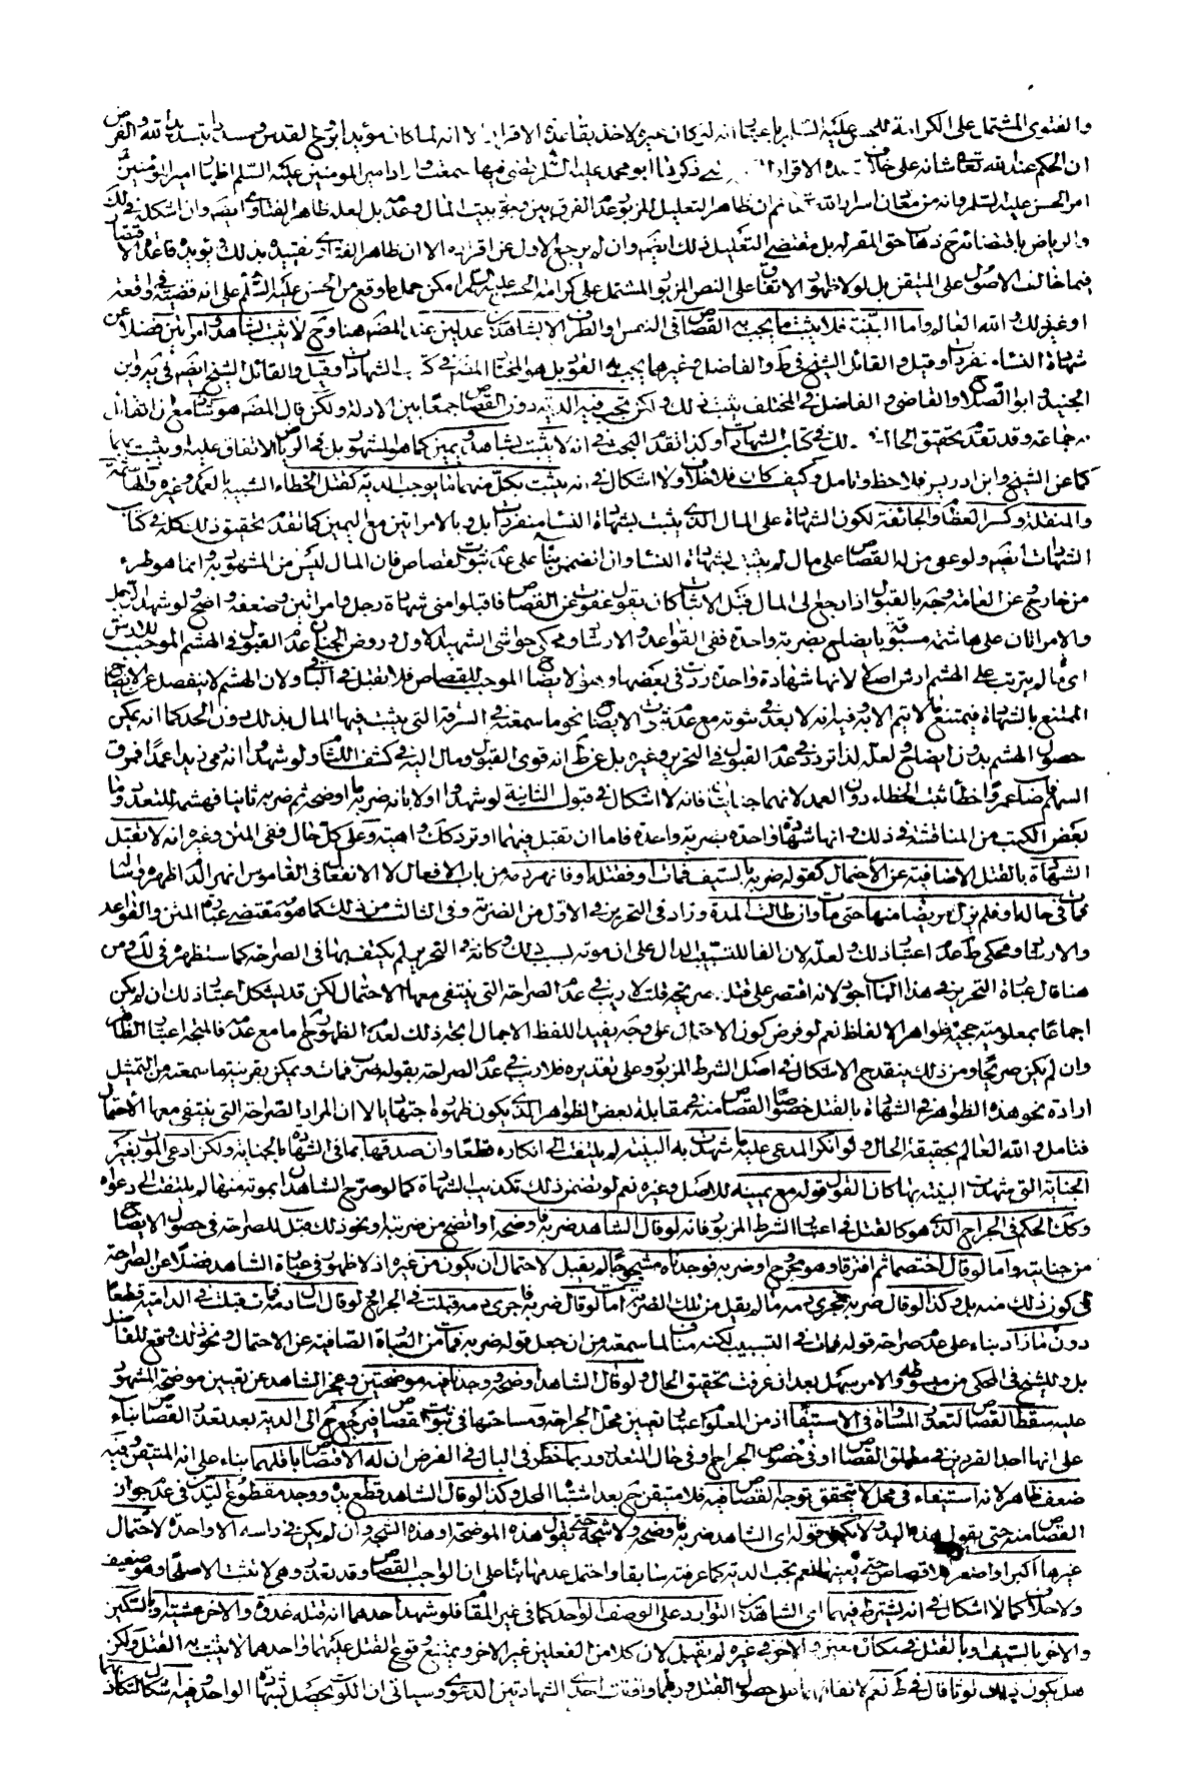 والفتوى المشتمل على الكرامة للحسن عليه السلام باعتبار انه لو كان غيره لاخذ بقاعدة الاقرار الا انه لما كان مؤيدا بروح القدس ومسددا بتسديد الله وافق
ان الحكم عند الله تعالى شانه على خلاف هذه الاقرار ذكرنا ابو محمد عليه السلم قضى فيها سمعت واراد امير المومنين عليه السلم اظهار امير المومنين
امر الحسن عليه السلم وانه من معادن اسرار الله ثم ان ظاهر التعليل المزبور عدم الفرق بين وجود بيت المال وعدمه بل لعله ظاهر الفتاوى ايضا وان اشكله في لك
والرياض باقتضائه ذهاب حق المقر له بل مقتضى التعليل ذلك ايضا وان لم يرجع الاول عن اقراره الا ان ظاهر الفتاوى تقييده بذلك ويؤيده قاعدة الاقتصار
فيما خالف الاصول على المتيقن بل لولا ظهور الاتفاق على النص المزبور المشتمل على كرامة الحسن عليه السلم امكن حمل ما وقع من الحسن عليه السلم على انه قضية في واقعة
او غير ذلك والله العالم واما البينة فلا يثبت ما يجب به القصاص في النفس والطرف الا بشاهدين عدلين عند المصنف هنا وح لا يثبت بشاهد وامرأتين فضلا عن
شهادة النساء منفردات وقيل والقائل الشيخ في ط والفاضل وغيرهما يجب به القود بل هو المختار المصنف في كتاب الشهادات وقيل والقائل الشيخ ايضا في يه وابن
الجنيد وابو الصلاح والقاضي والفاضل في المختلف يثبت ذلك ولكن تجب فيه الدية دون القصاص جمعا بين الادلة ولكن قال المصنف هو شاذ مع ان القائل
به جماعة وقد تقدم تحقيق الحال في ذلك في كتاب الشهادات وكذا تقدم البحث في انه لا يثبت بشاهد ويمين كما هو المشهور بل في الرياض الاتفاق عليه او يثبت بهما
كما عن الشيخ وابن ادريس فلاحظ وتامل وكيف كان فلا خلاف ولا اشكال في انه يثبت بكل منهما ما يوجب الدية كقتل الخطاء الشبيه بالعمد وغيره والهاشمة
والمنقلة وكسر العظام والجائفة لكون الشهادة على المال الذي يثبت بشهادة النساء منفردات بل وبالامراتين مع اليمين كما تقدم تحقيق ذلك كله في كتاب
الشهادات ايضا ولو عفى من له القصاص على مال لم يثبت بشهادة النساء وان تضمن بناء على عدم ثبوت القصاص فان المال ليس من المشهود به انما هو طرء
من خارج وعن العامة وجه بالقبول اذا رجع الى المال قبل الاثبات كان يقول عفوت عن القصاص فاقبلوا مني شهادة رجل وامراتين وضعفه واضح ولو شهد الرجل
والامراتان على هاشمة مسبوقة بايضاح بضربة واحدة ففي القواعد والارشاد ومحكي حواشي الشهيد الاول وروض الجنان عدم القبول في الهشم الموجب للارش
اي لم يترتب على الهشم ارش اصلا لانها شهادة واحدة ردت في بعضها وهو الايضاح الموجب للقصاص فلا تقبل في الباقي ولان الهشم لا ينفصل عن الايضاح
الممتنع بالشهادة فيمتنع ما لا يتم الا به وفيه انه لا بعد في ثبوته مع عدم ثبوت الايضاح نحو ما سمعته في السرقة التي يثبت فيها المال بذلك دون الحد كما انه يمكن
حصول الهشم بدون ايضاح ولعله لذا تردد في عدم القبول في التحرير وغيره بل عن ط انه قوى القبول ومال اليه في كشف اللثام ولو شهدوا انه رمى زيدا عمدا فمرق
السهم فاصاب عمروا خطأ ثبت الخطاء دون العمد لانهما جنايتان فانه لا اشكال في قبول الثانية لو شهدوا اولا بانه ضربه فاوضحه ثم ضربه ثانيا فهشمه للتعدد وما في
بعض الكتب من المناقشة في ذلك بانها شهادة واحدة بضربة واحدة فاما ان تقبل فيهما او ترد كذلك واهية وعلى كل حال ففي المتن وغيره انه لا تقبل
الشهادة بالقتل الا صافية عن الاحتمال كقوله ضربه بالسيف فمات او فقتله او فانهر دمه من باب الافعال لا الانفعال ففي القاموس انهر الدم اظهره واساله
فمات في حاله او فلم يزل مريضا منها حتى مات وان طالت المدة وزاد في التحرير في الاول من الضربة وفي الثالث من ذلك كما هو مقتضى عبارة المتن والقواعد
والارشاد ومحكي ط عدم اعتبار ذلك ولعله لان الفا للتسبيب الدال على ان موته بسبب ذلك وكانه في التحرير لم يكتف بها في الصراحة كما ستظهره في ذلك ومن
هنا قال عبارة التحرير في هذا الباب اجود لانه اقتصر على قتل صريحة قلت لا ريب في عدم الصراحة التي ينتفي معها الاحتمال لكن قد يشكل اعتبار ذلك ان لم يكن
اجماعا بمعلومية حجية ظواهر الالفاظ نعم لو فرض كون الاحتمال على وجه يفيد اللفظ الاجمال اتجه ذلك لعدم الظهور ح اما مع عدمه فالمتجه اعتبار الظاهر
وان لم يكن صريحا ومن ذلك ينقدح الاشكال في اصل الشرط المزبور وعلى تقديره فلا ريب في عدم الصراحة بقوله ضربه فمات ويمكن بقرينة ما سمعته من التمثيل
ارادة نحو هذه الظواهر في الشهادة بالقتل خصوصا القصاص منه في مقابلة بعض الظواهر الذي يكون ظهوره اجتهاديا لا ان المراد الصراحة التي ينتفي معها الاحتمال
فتامل والله العالم بحقيقة الحال ولو انكر المدعى عليه ما شهدت به البينة لم يلتفت الى انكاره قطعا وان صدقها بما في الشهادة بالجناية ولكن ادعى الموت بغير
الجناية التي شهدت البينة بها كان القول قوله مع يمينه للاصل وغيره نعم لو تضمن ذلك تكذيب الشهادة كما لو صرح الشاهدان بموته منها لم يلتفت الى دعواه
وكذا الحكم في الجراح الذي هو كالقتل في اعتبار الشرط المزبور فانه لو قال الشاهد ضربه فاوضحه او اتضح من ضربته او نحو ذلك قبل للصراحة في حصول الايضاح
من جنايته واما لو قال اختصما ثم افترقا وهو مجروح او ضربه فوجدناه مشجوجا لم يقبل لاحتمال ان يكون من غيره اذ لا ظهور في عبارة الشاهد فضلا عن الصراحة
في كون ذلك منه بل وكذا لو قال ضربه فجرى دمه ما لم يقل من تلك الضربة اما لو قال ضربه فاجرى دمه قبلت في الجراح ولو قال اسال دمه فمات قبلت في الدامية قطعا
دون ما زاد بناء على عدم صراحة قوله فمات في التسبيب لكنه مناف لما سمعته من ان جعل قوله ضربه فمات من العبارة الصافية عن الاحتمال ونحو ذلك وقع للفاضل
بل وللشيخ في المحكي من مبسوطه والامر سهل بعد ان عرفت تحقيق الحال ولو قال الشاهد اوضحه ووجدنا فيه موضحتين وعجز الشاهد عن تعيين موضحة المشهود
عليه سقط القصاص لتعذر المساواة في الاستيفاء اذ من المعلوم اعتبار تعيين محل الجراحة ومساحتها في ثبوت القصاص فيرجع ح الى الدية بعد تعذر القصاص بناء
على انها احد الفردين في مطلق القصاص او في خصوص الجراح وفي حال التعذر وربما خطر في البال في الفرض ان له الاقتصاص باقلهما بناء على انه المتيقن وفيه
ضعف ظاهر لانه استيفاء في محل لا يتحقق توجه القصاص فيه فلا متيقن ح بعد اشتباه المحل وكذا لو قال الشاهد قطع يده ووجد مقطوع اليدين في عدم جواز
القصاص منه حتى يقول هذه اليد ولا يكفي قوله اي الشاهد ضربه فاوضحه ولا شجه حتى يقول هذه الموضحة او هذه الشجة وان لم يكن في راسه الا واحدة لاحتمال
غيرها اكبر او اصغر فلا قصاص حتى يعينها نعم يجب الدية كما عرفته سابقا واحتمل عدمها بناء على ان الواجب القصاص وقد تعذر وهي لا تثبت الا صلحا وهو ضعيف
ولا خلاف كما لا اشكال في انه يشترط فيهما اي الشاهدين التوارد على الوصف الواحد كما في غير المقام فلو شهد احدهما انه قتله غدوة والاخر عشية او بالسكين
والاخر بالسيف او بالقتل في مكان معين والاخر في غيره لم يقبل لان كلا من الفعلين غير الاخر ويمتنع وقوع القتل عليهما واحدهما لا يثبت به القتل ولكن
هل يكون ذلك لوثا قال في ط نعم لاتفاقهما على حصول القتل وربما وافقت احدى الشهادتين الدعوى وسياتي ان اللوث يحصل بشهادة الواحد وفيه اشكال لتكاذبهما